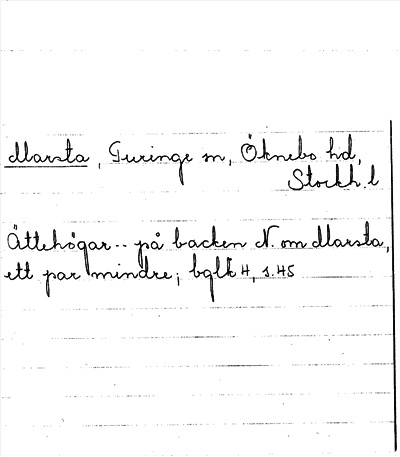 Marsta, Turinge sn, Öknebo hd,
Stockh. l
Ättehögar -- på backen N. om Marsta,
ett par mindre; bglk 4, s. 45